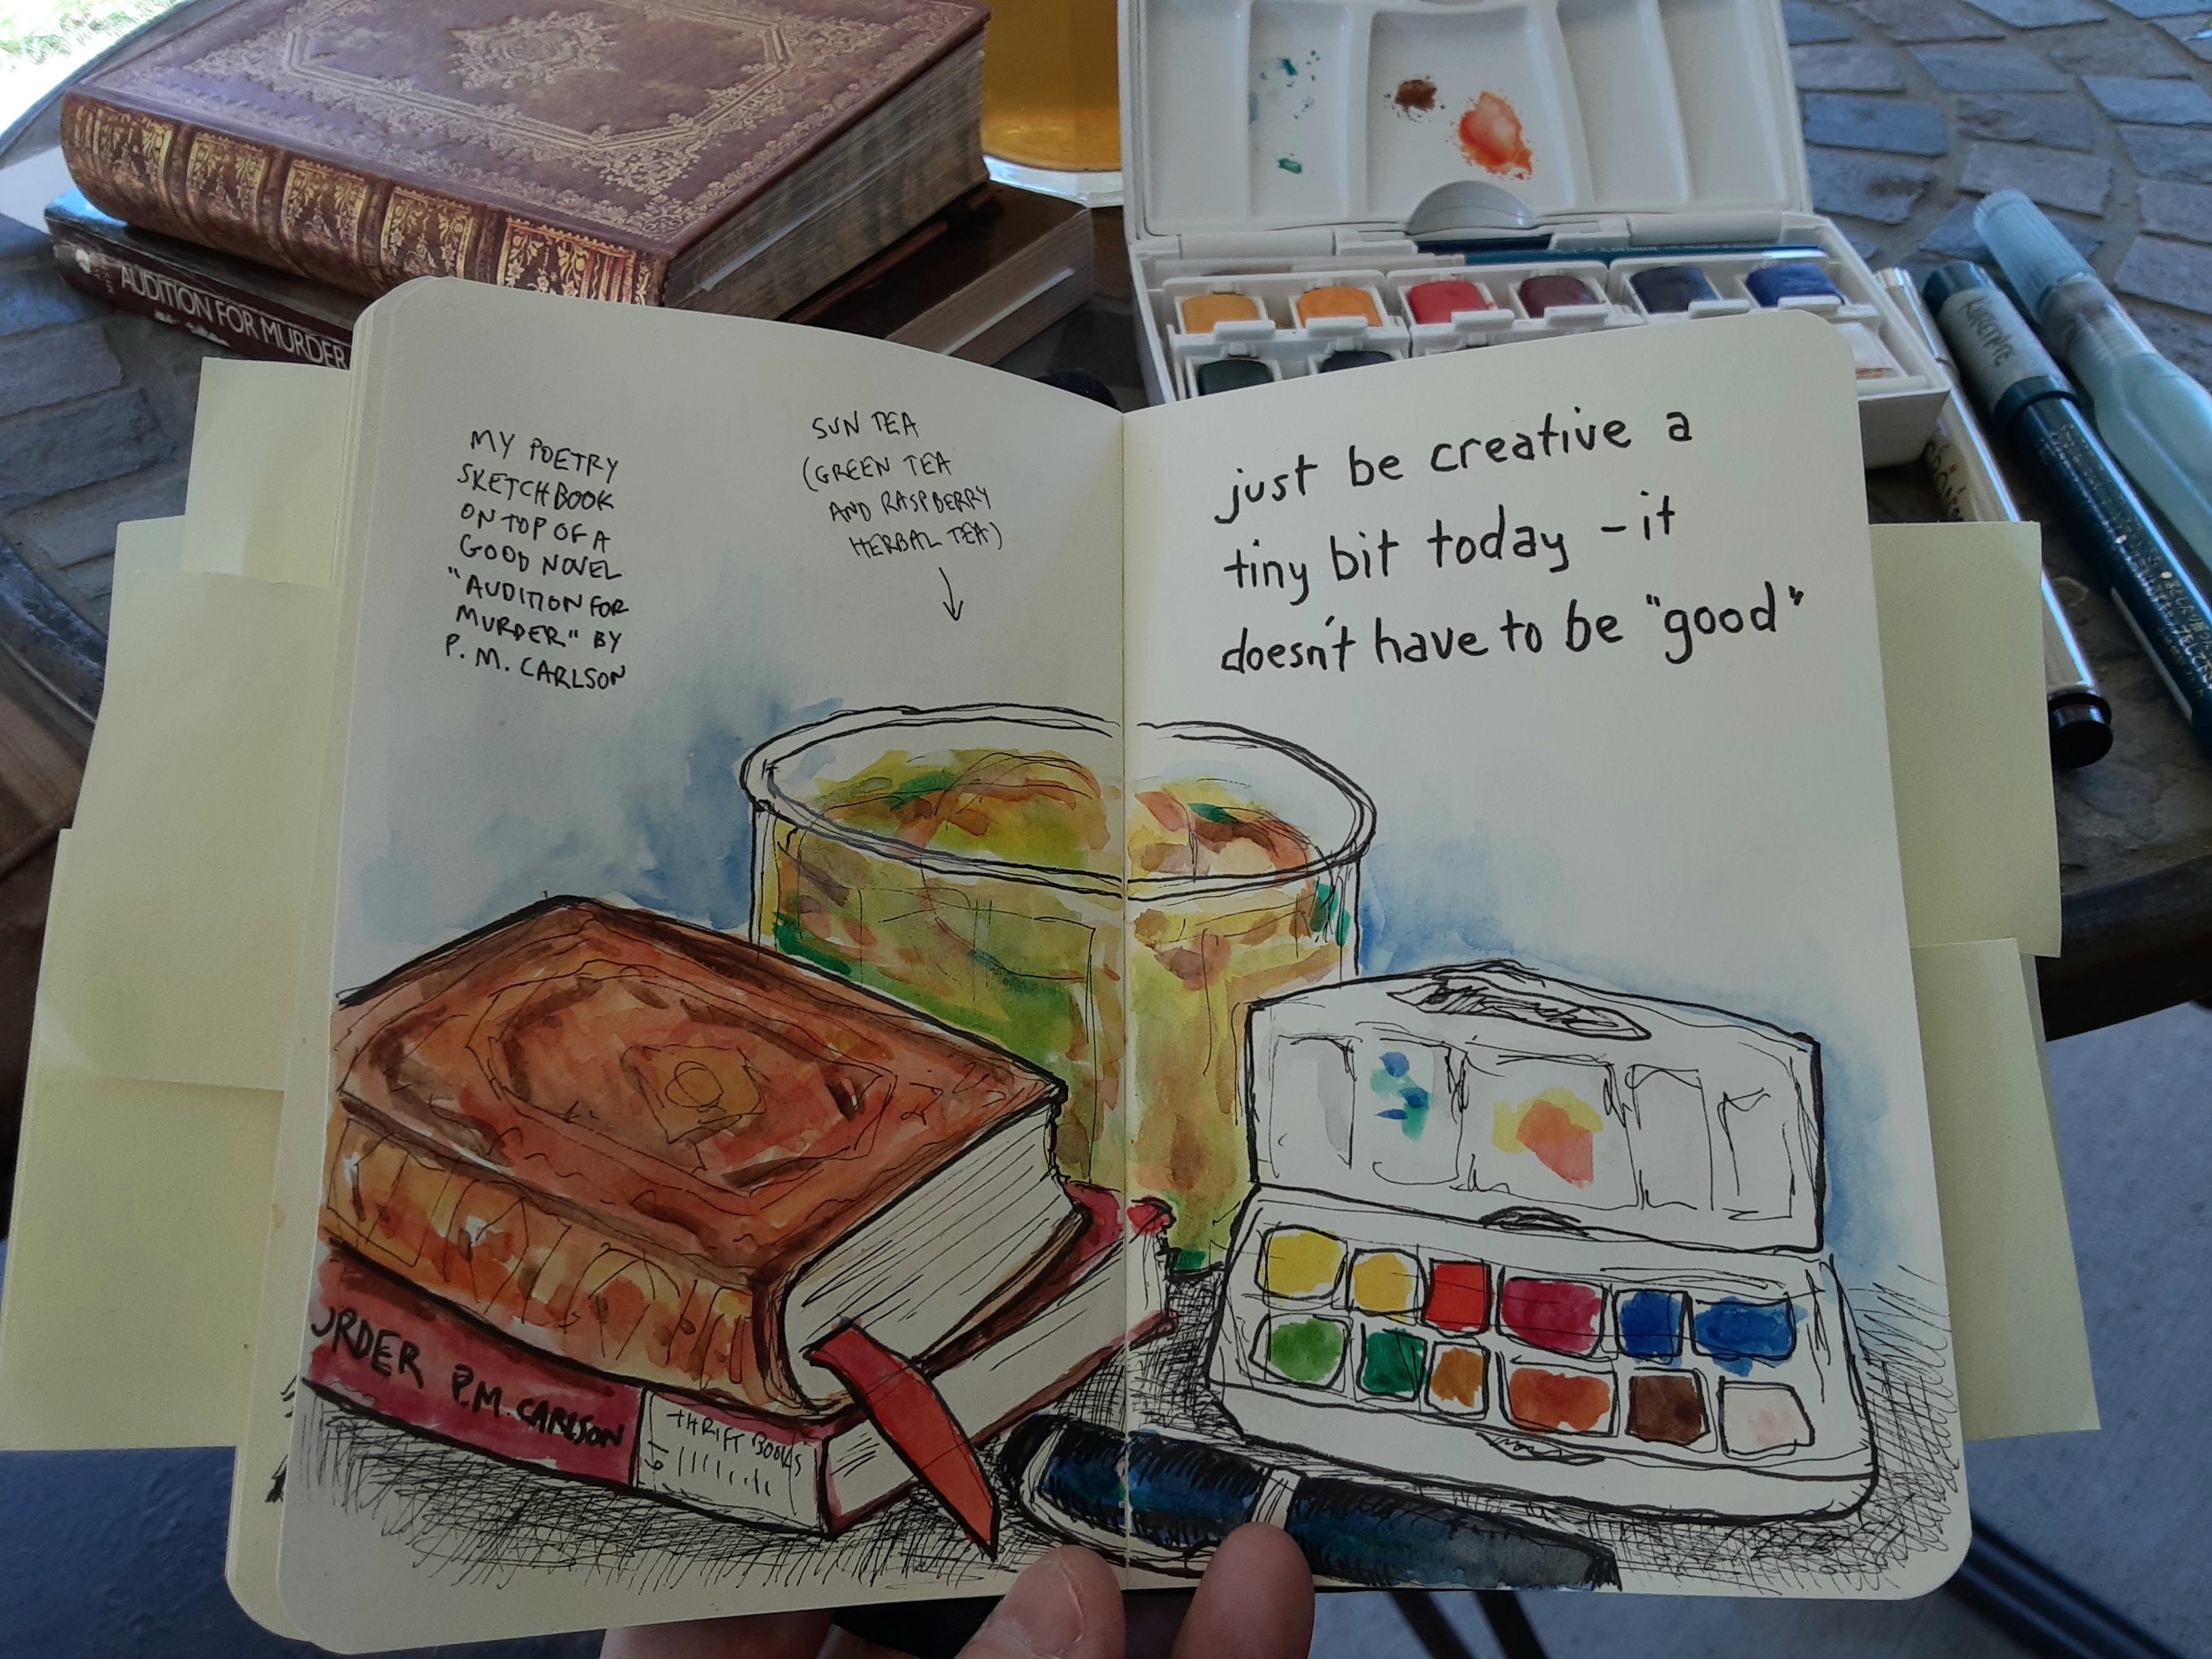 AUDITION FOR MURDER
MY POETRY
SKETCHBOOK
ON TOP OF A
GOOD NOVEL
"AUDITION FOR
MURDER" BY
P. M. CARLSON
SUN TEA
(GREEN TEA
AND RASPBERRY
HERBAL TEA)
just be creative a
tiny bit today - it
doesn't have to be "good"
URDER P.M. CARLSON
THRIFT BOOKS